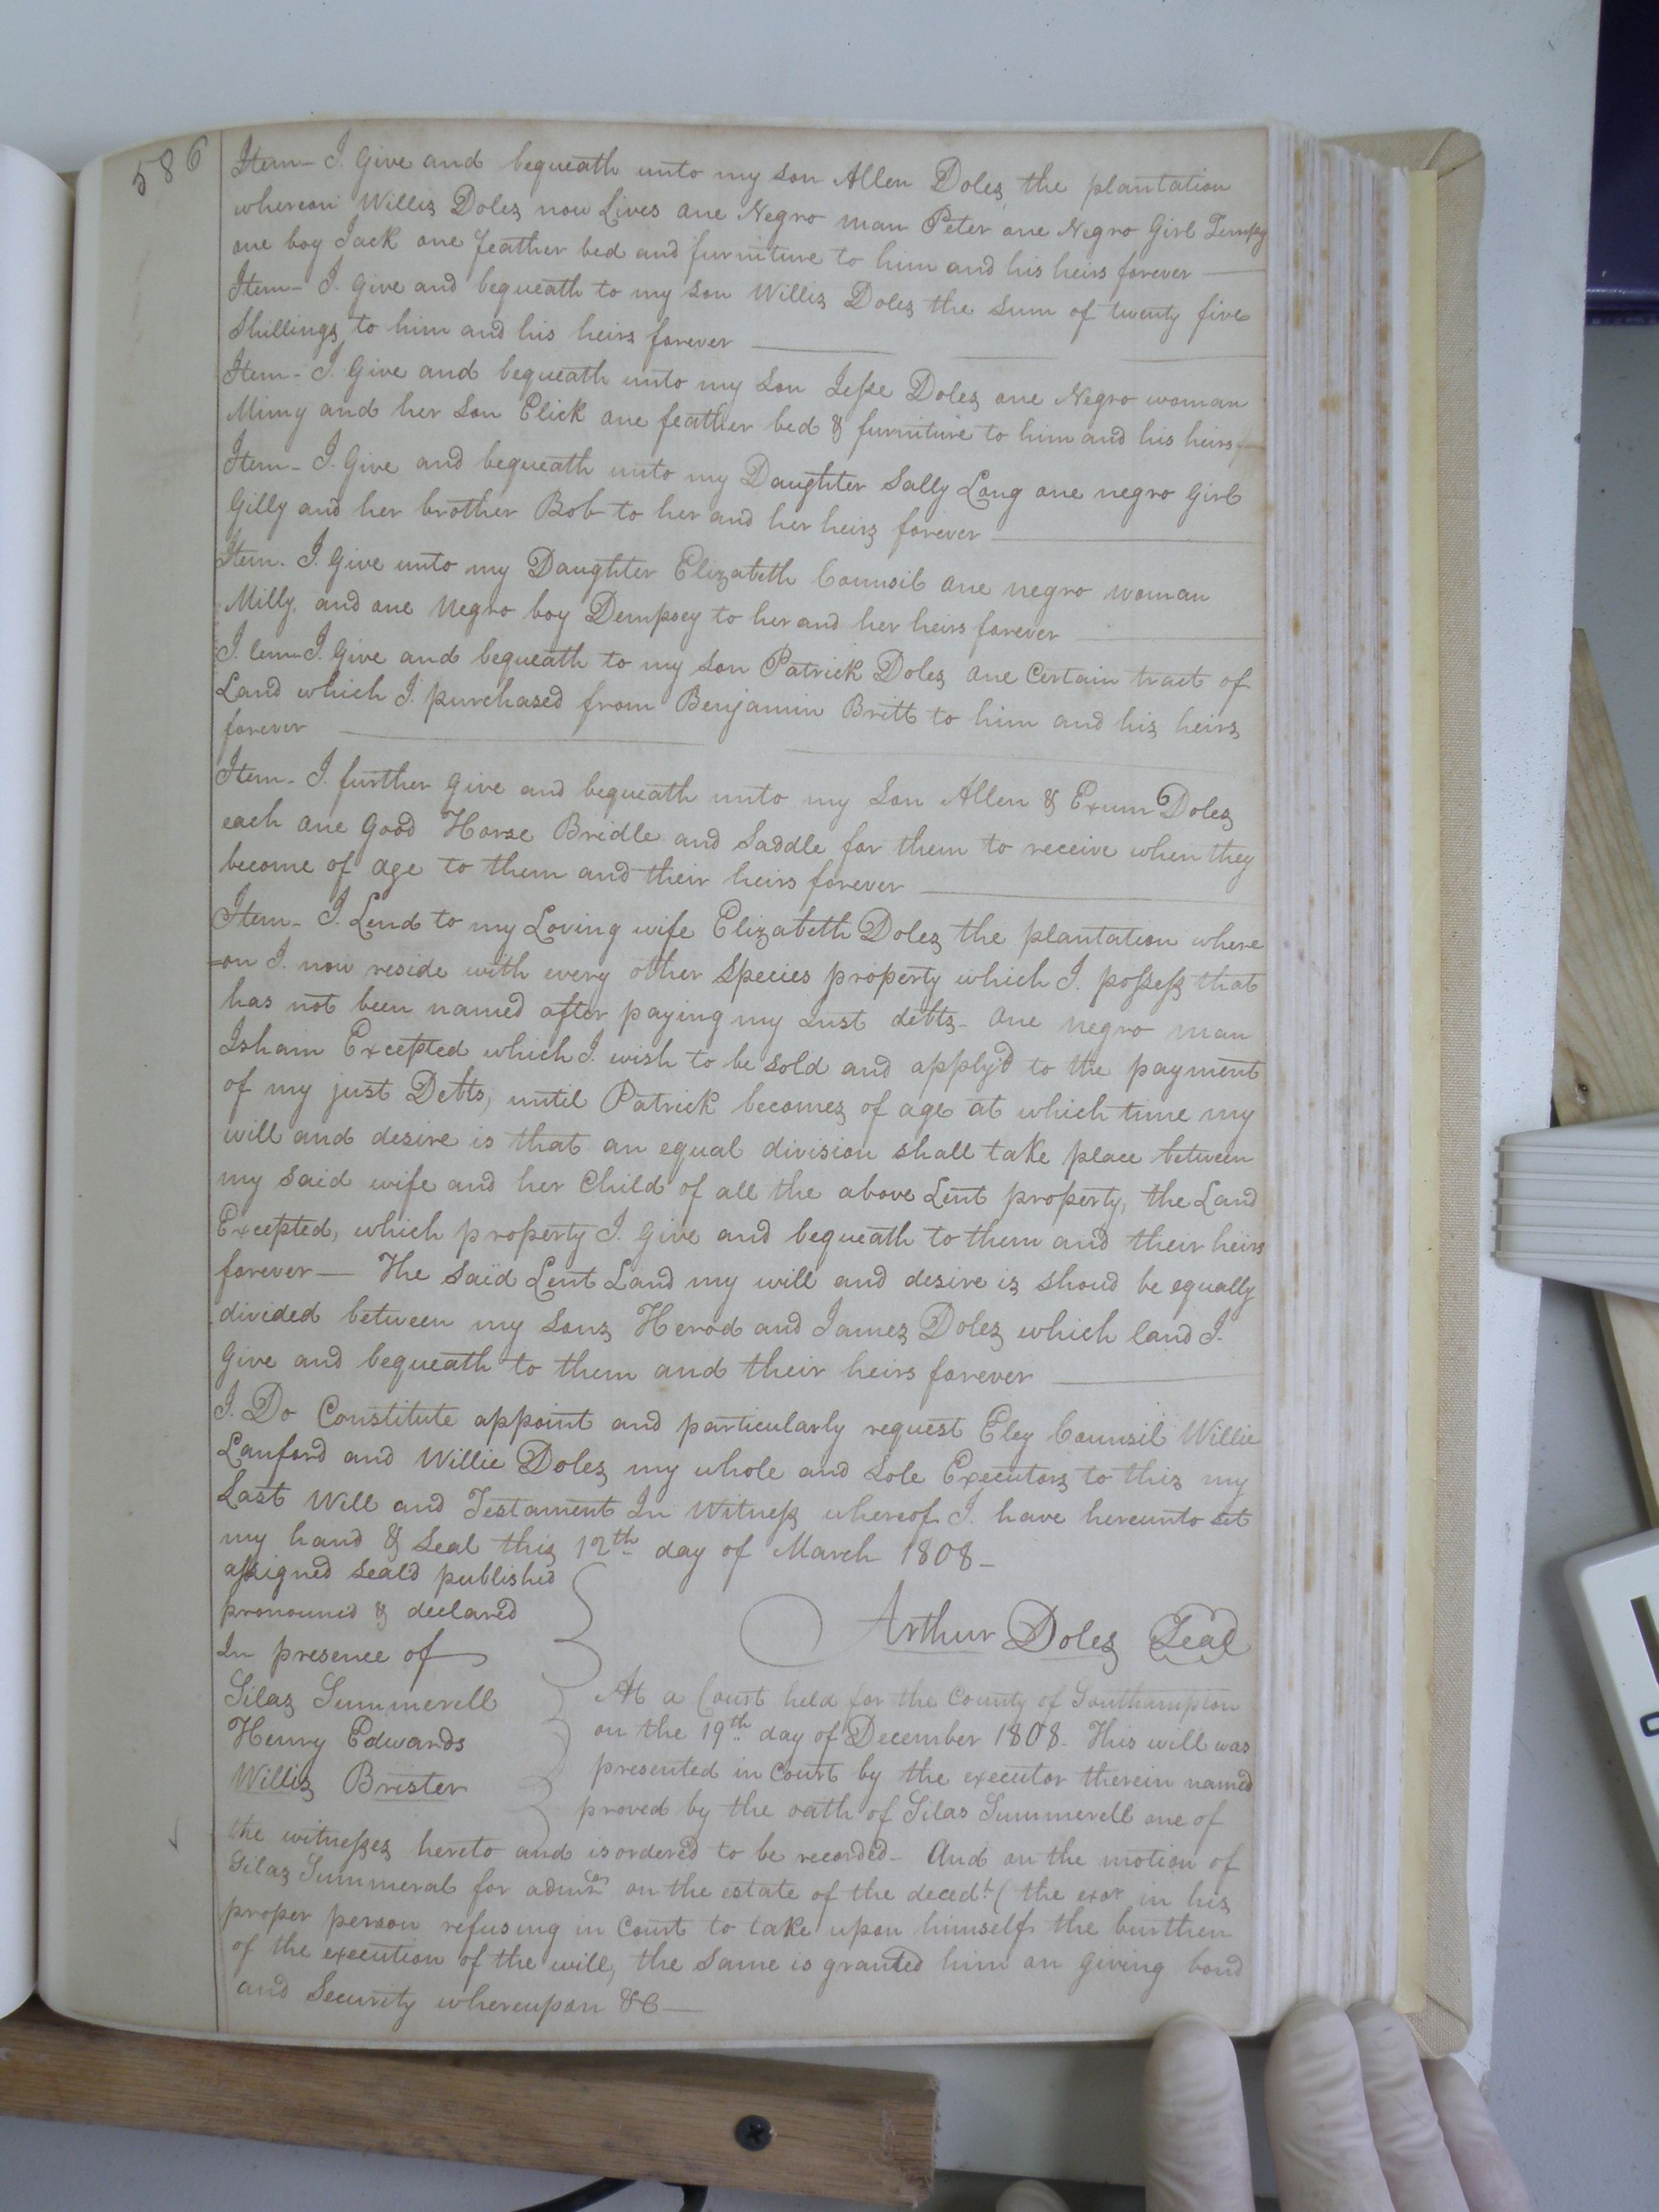 586
Item- I. Give and bequeath unto my son Allen Doles the plantation
whereon Willis Doles now Lives one Negro man Peter one Negro Girl Tempy
one boy Jack one feather bed and furniture to him and his heirs forever
Item- I. Give and bequeath to my son Willis Doles the sum of twenty five
Shillings to him and his heirs forever
Item- I. Give and bequeath unto my son Jesse Doles one Negro woman
Mimy and her son Elick one feather bed & furniture to him and his heirs f
Item- I. Give and bequeath unto my Daughter Sally Long one negro Girl
Gilly and her brother Bob to her and her heirs forever
Item. I. Give unto my Daughter Elizabeth Counsil one negro woman
Milly, and one Negro boy Dempsey to her and her heirs forever
Item- I. Give and bequeath to my son Patrick Doles one Certain tract of
Land which I. purchased from Benjamin Britt to him and his heirs
forever
Item- I. further give and bequeath unto my son Allen & Exum Doles
each one good Horse Bridle and Saddle for them to receive when they
become of age to them and their heirs forever
Item- I. Lend to my Loving wife Elizabeth Doles the plantation where
=on I. now reside with every other Species property which I. possess that
has not been named after paying my Just debts- one negro man
Isham Excepted which I. wish to be sold and apply'd to the payment
of my just Debts, until Patrick becomes of age at which time my
will and desire is that an equal division shall take place between
my said wife and her Child of all the above Lent property, the Land
Excepted, which property I. give and bequeath to them and their heirs
forever- The said Lent Land my will and desire is shoud be equally
divided between my sons Herod and James Doles which land I.
Give and bequeath to them and their heirs forever
I. Do Constitute appoint and particularly request Eley Counsil Willie
Lanford and Willie Doles my whole and Sole Executors to this my
Last Will and Testament In Witness whereof I. have hereunto set
my hand & Seal this 12th day of March 1808-
assigned Seald published
pronouncd & declared
In presence of
Arthur Doles Seal
Silas Summerell
Henry Edwards
Willis Brister
At a Court held for the County of Southampton
on the 19th day of December 1808- This will was
presented in Court by the executor therein named
proved by the oath of Silas Summerell one of
the witnesses hereto and is ordered to be recorded- And on the motion of
Silas Summeral for admr on the estate of the decedt (the exor in his
proper person refusing in Court to take upon himself the burthen
of the execution of the will, the same is granted him on giving bond
and Security whereupon &C